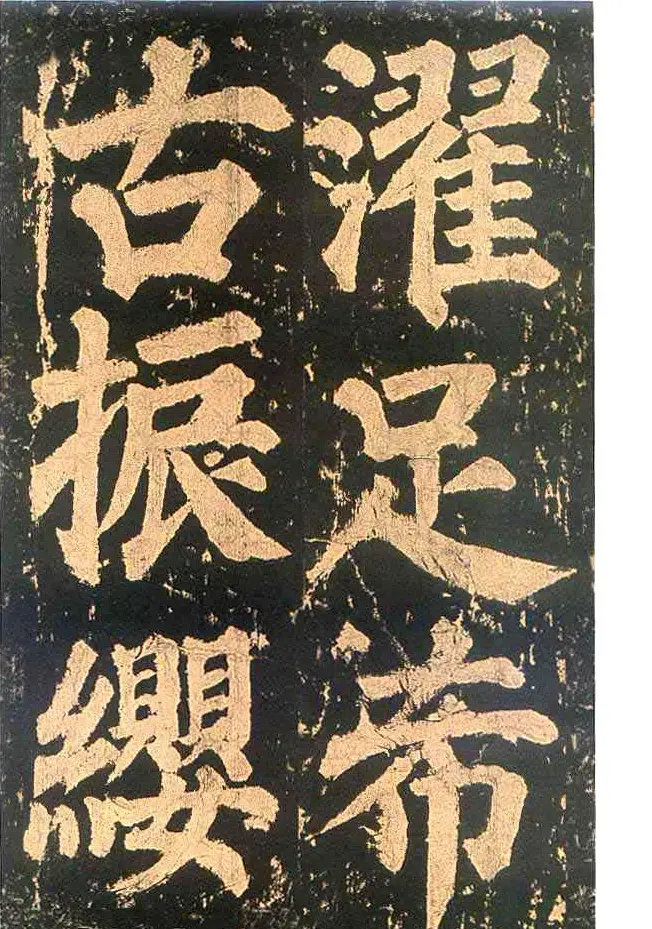 濯足希
古振纓